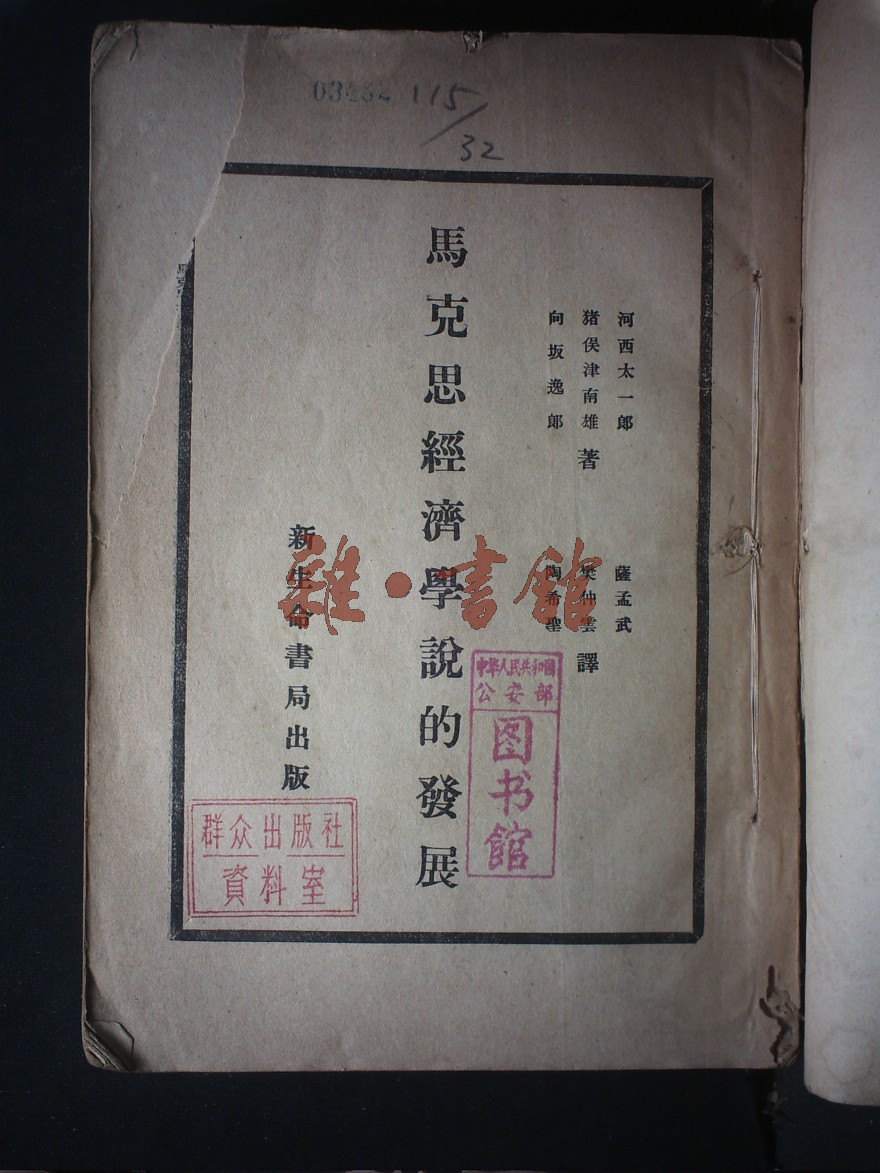 115/32
河西太一郎
猪俣津南雄 著
向坂逸郎
薩孟武
樊仲雲 譯
陶希聖
馬克思經濟學說的發展
新生命書局出版
中华人民共和国
公安部
图书馆
群众出版社
資料室
雜·書館